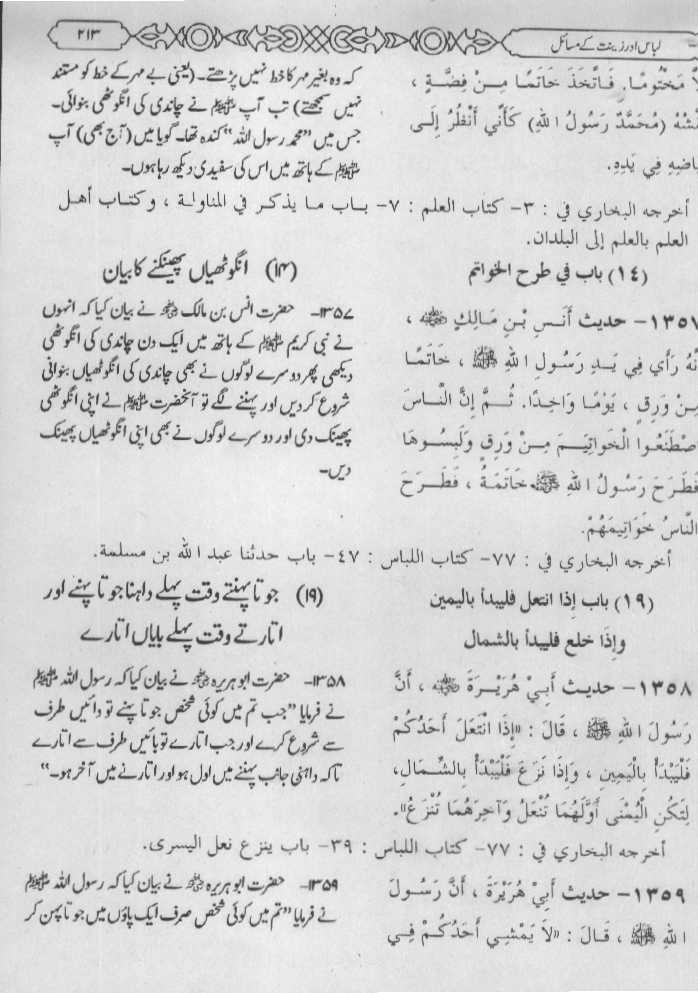 لباس اور زینت کے مسائل
۲۱۳
مَخْتُومًا. فَاتَّخَذَ خَاتَمًا مِنْ فِضَّةٍ ،
(مُحَمَّدٌ رَسُولُ اللهِ) كَأَنِّي أَنْظُرُ إِلَى
فِي يَدِهِ.
کہ وہ بغیر مہر کا خط نہیں پڑھتے۔ (یعنی بے مہر کے خط کو مستند
نہیں سمجھتے) تب آپ ﷺ نے چاندی کی انگوٹھی بنوائی۔
جس میں ”محمد رسول اللہ“ کندہ تھا۔ گویا میں (آج بھی) آپ
ﷺ کے ہاتھ میں اس کی سفیدی دیکھ رہا ہوں۔
أخرجه البخاري في : ٣- كتاب العلم : ٧- باب ما يذكر في المناولة ، وكتاب أهل
العلم بالعلم إلى البلدان.
(١٤) باب في طرح الخواتم
(۱۴) انگوٹھیاں پھینکنے کا بیان
١٣٥٧- حديث أَنَسِ بْنِ مَالِكٍ ﷺ ،
رَأَى فِي يَدِ رَسُولِ اللهِ ﷺ ، خَاتَمًا
مِنْ وَرِقٍ ، يَوْمًا وَاحِدًا. ثُمَّ إِنَّ النَّاسَ
اصْطَنَعُوا الْخَوَاتِيمَ مِنْ وَرِقٍ وَلَبِسُوهَا
فَطَرَحَ رَسُولُ اللهِ ﷺ خَاتَمَهُ ، فَطَرَحَ
النَّاسُ خَوَاتِيمَهُمْ.
۱۳۵۷- حضرت انس بن مالک ؓ نے بیان کیا کہ انہوں
نے نبی کریم ﷺ کے ہاتھ میں ایک دن چاندی کی انگوٹھی
دیکھی پھر دوسرے لوگوں نے بھی چاندی کی انگوٹھیاں بنوانی
شروع کر دیں اور پہننے لگے تو آنحضرت ﷺ نے اپنی انگوٹھی
پھینک دی اور دوسرے لوگوں نے بھی اپنی انگوٹھیاں پھینک
دیں۔
أخرجه البخاري في : ٧٧- كتاب اللباس : ٤٧- باب حدثنا عبد الله بن مسلمة.
(١٩) باب إذا انتعل فليبدأ باليمين
وإذا خلع فليبدأ بالشمال
(۱۹) جوتا پہنتے وقت پہلے داہنا جوتا پہنے اور
اتارتے وقت پہلے بایاں اتارے
١٣٥٨- حديث أَبِي هُرَيْرَةَ ؓ ، أَنَّ
رَسُولَ اللهِ ﷺ ، قَالَ : «إِذَا انْتَعَلَ أَحَدُكُمْ
فَلْيَبْدَأْ بِالْيَمِينِ ، وَإِذَا نَزَعَ فَلْيَبْدَأْ بِالشِّمَالِ،
لِتَكُنِ الْيُمْنَى أَوَّلَهُمَا تُنْعَلُ وَآخِرَهُمَا تُنْزَعُ».
۱۳۵۸- حضرت ابو ہریرہ ؓ نے بیان کیا کہ رسول اللہ ﷺ
نے فرمایا ”جب تم میں کوئی شخص جوتا پہنے تو دائیں طرف
سے شروع کرے اور جب اتارے تو بائیں طرف سے اتارے
تاکہ داہنی جانب پہننے میں اول ہو اور اتارنے میں آخر ہو۔“
أخرجه البخاري في : ٧٧- كتاب اللباس : ٣٩- باب ينزع نعل اليسرى.
١٣٥٩- حديث أَبِيْ هُرَيْرَةَ ، أَنَّ رَسُولَ
اللهِ ﷺ ، قَالَ : «لاَ يَمْشِي أَحَدُكُمْ فِي
۱۳۵۹- حضرت ابو ہریرہ ؓ نے بیان کیا کہ رسول اللہ ﷺ
نے فرمایا ”تم میں کوئی شخص صرف ایک پاؤں میں جوتا پہن کر